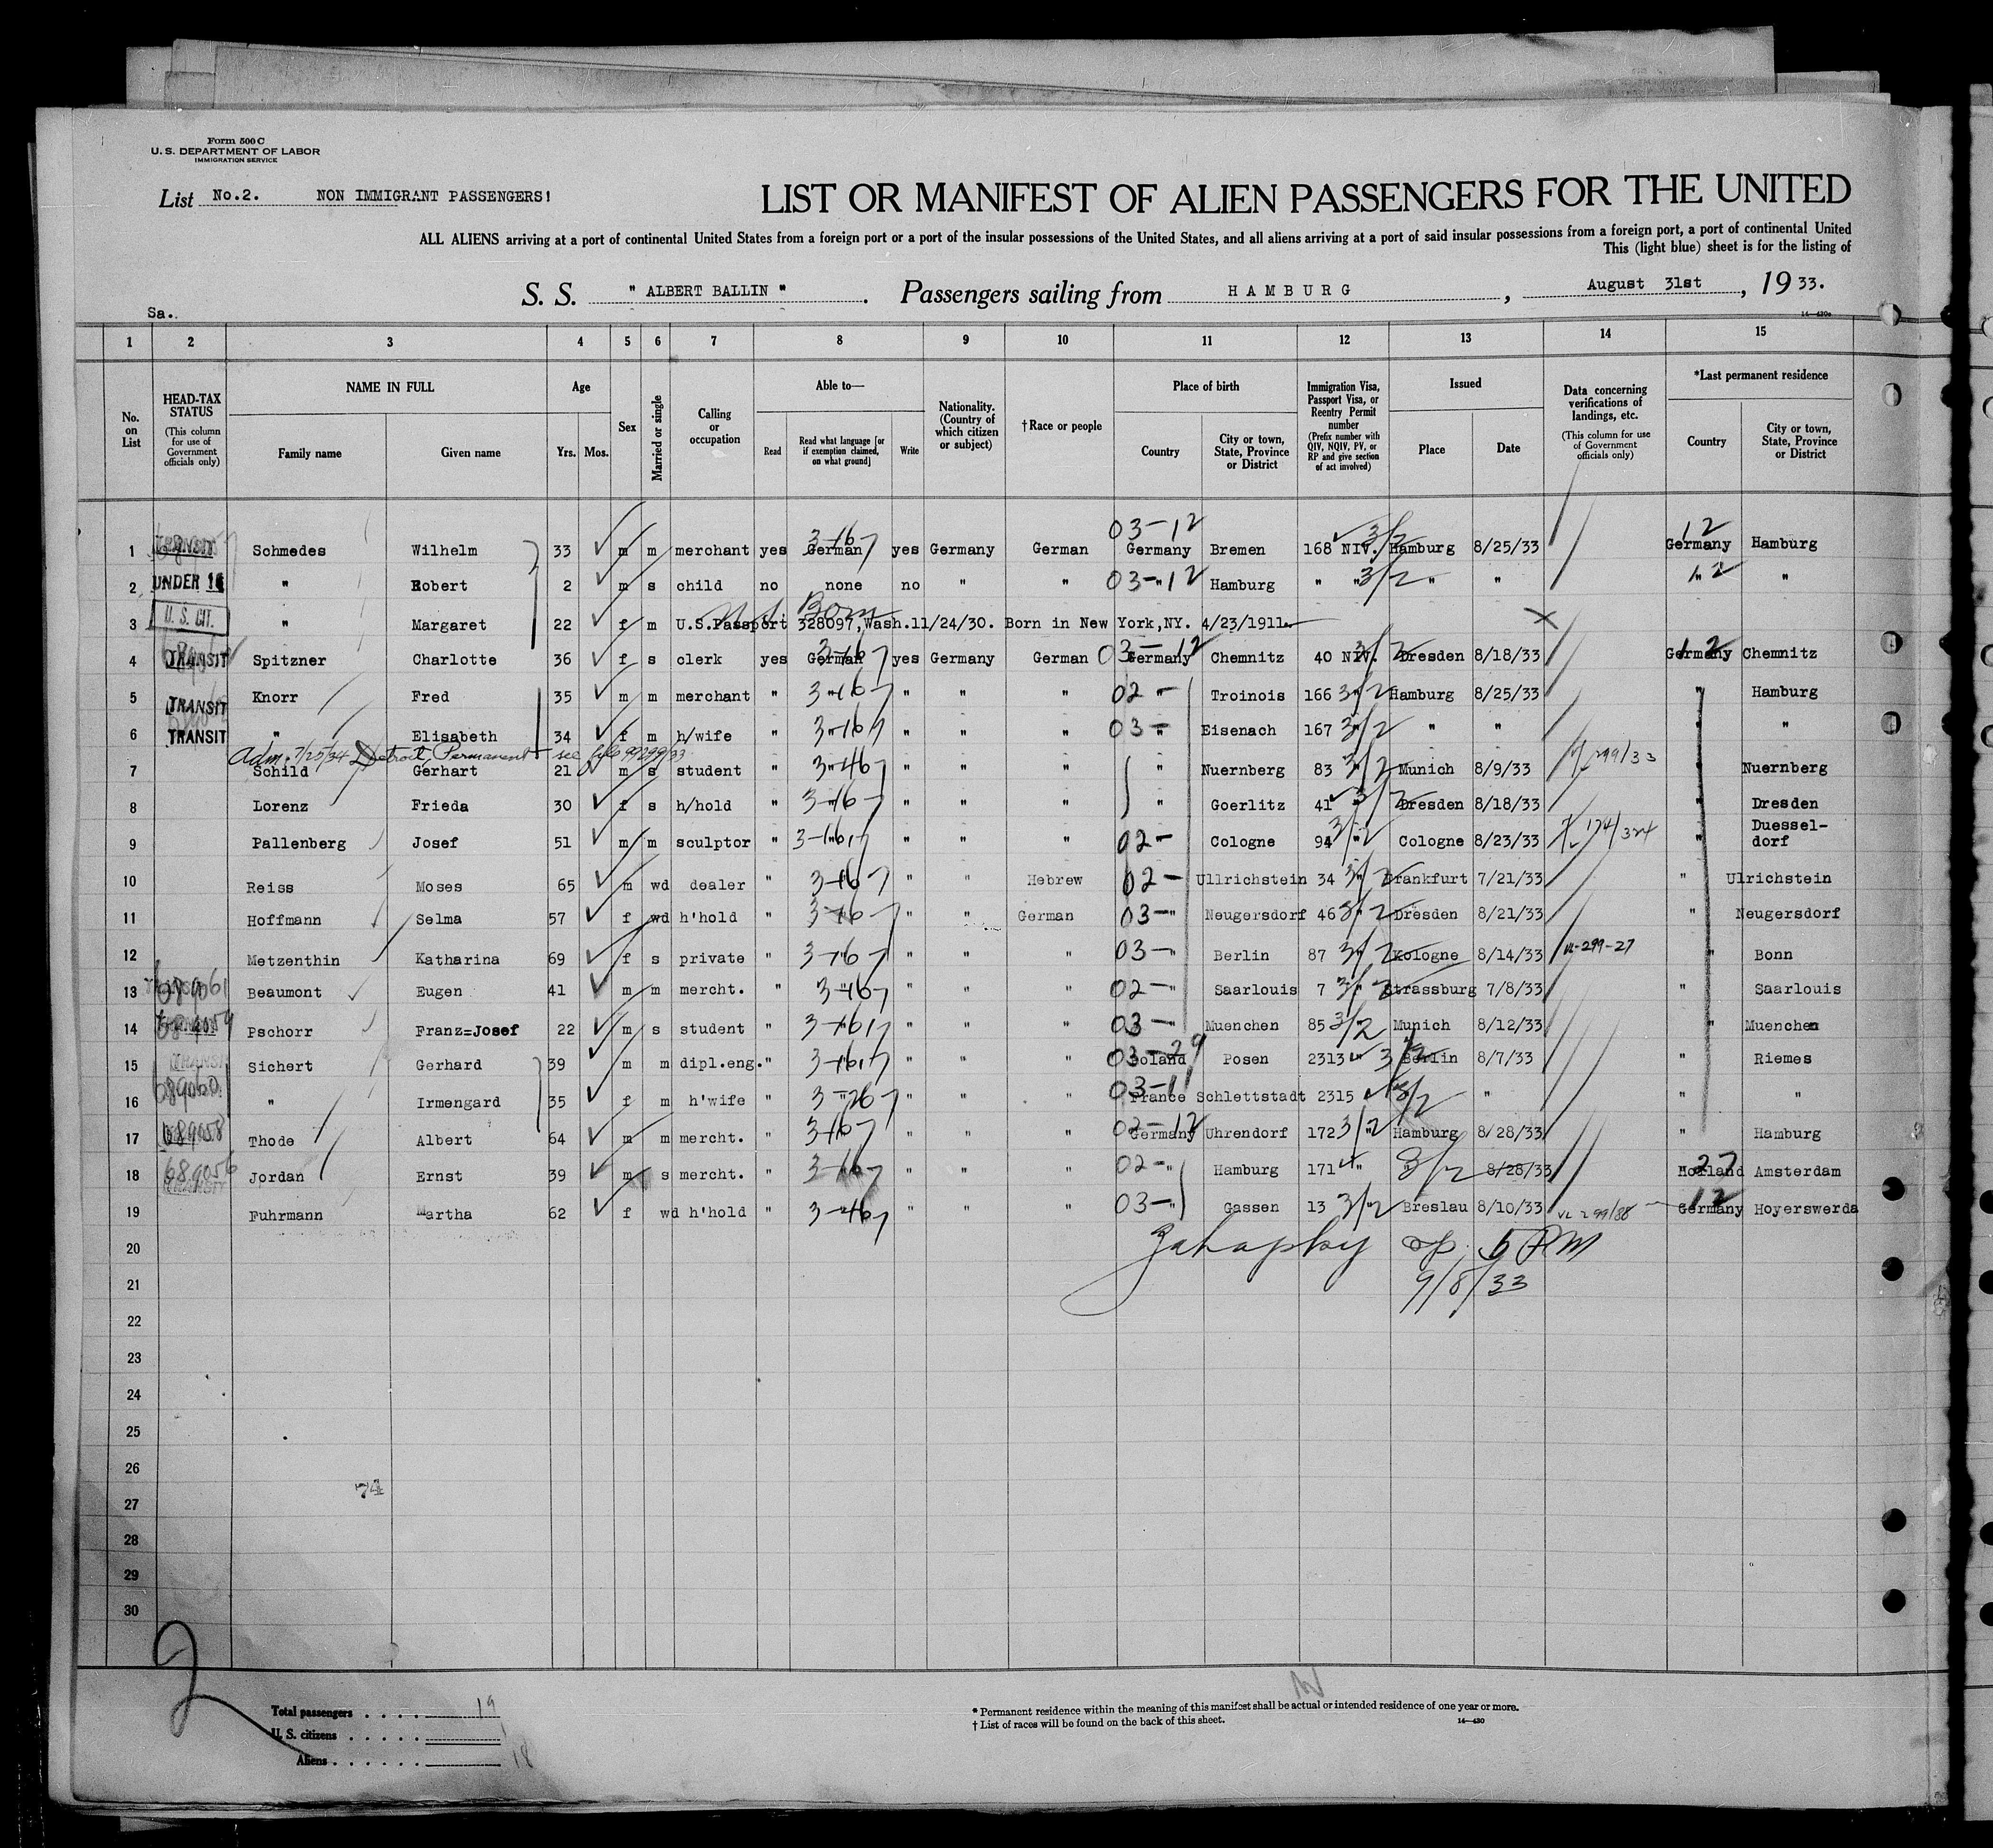 Form 500 C
U. S. DEPARTMENT OF LABOR
IMMIGRATION SERVICE
List No.2. NON IMMIGRANT PASSENGERS!
LIST OR MANIFEST OF ALIEN PASSENGERS FOR THE UNITED
ALL ALIENS arriving at a port of continental United States from a foreign port or a port of the insular possessions of the United States, and all aliens arriving at a port of said insular possessions from a foreign port, a port of continental United
This (light blue) sheet is for the listing of
S. S. " ALBERT BALLIN " . Passengers sailing from HAMBURG , August 31st , 19 33.
Sa.
1 2 3 4 5 6 7 8 9 10 11 12 13 14 15
No. on List
HEAD-TAX STATUS (This column for use of Government officials only)
NAME IN FULL Family name Given name
Age Yrs. Mos.
Sex
Married or single
Calling or occupation
Able to— Read Read what language [or if exemption claimed, on what ground] Write
Nationality. (Country of which citizen or subject)
†Race or people
Place of birth Country City or town, State, Province or District
Immigration Visa, Passport Visa, or Reentry Permit number (Prefix number with QIV, NQIV, PV, or RP and give section of act involved)
Issued Place Date
Data concerning verifications of landings, etc. (This column for use of Government officials only)
*Last permanent residence Country City or town, State, Province or District
1 TRANSIT Schmedes Wilhelm 33 m m merchant yes German yes Germany German 03-12 Germany Bremen 168 NIV. 3/2 Hamburg 8/25/33 12 Germany Hamburg
2 UNDER 16 " Robert 2 m s child no none no " " 03-12 " Hamburg " " 3/2 " " 12 " "
3 U.S. CIT. " Margaret 22 f m U.S.Passport 328097,Wash.11/24/30. Born in New York,NY. 4/23/1911. X
4 TRANSIT Spitzner Charlotte 36 f s clerk yes German yes Germany German 03-12 Germany Chemnitz 40 NIV. 3/2 Dresden 8/18/33 12 Germany Chemnitz
5 TRANSIT Knorr Fred 35 m m merchant " " " " " 02- " Troinois 166 " 3/2 Hamburg 8/25/33 " Hamburg
6 TRANSIT " Elisabeth 34 f m h/wife " " " " " 03- " Eisenach 167 " 3/2 " " " "
Adm. 7/25/34 Detroit, Permanent see file 99299/33
7 Schild Gerhart 21 m s student " " " " " " Nuernberg 83 " 3/2 Munich 8/9/33 " Nuernberg
8 Lorenz Frieda 30 f s h/hold " " " " " " Goerlitz 41 " 3/2 Dresden 8/18/33 " Dresden
9 Pallenberg Josef 51 m m sculptor " " " " " 02- " Cologne 94 " 3/2 Cologne 8/23/33 " Duessel-dorf
10 Reiss Moses 65 m wd dealer " " " " Hebrew 02- Ullrichstein 34 " 3/2 Frankfurt 7/21/33 " Ulrichstein
11 Hoffmann Selma 57 f wd h'hold " " " " German 03- " Neugersdorf 46 " 3/2 Dresden 8/21/33 " Neugersdorf
12 Metzenthin Katharina 69 f s private " " " " " 03- " Berlin 87 " 3/2 Kologne 8/14/33 VL-299-27 " Bonn
13 689061 Beaumont Eugen 41 m m mercht. " " " " " 02- " Saarlouis 7 " 3/2 Strassburg 7/8/33 " Saarlouis
14 689059 Pschorr Franz=Josef 22 m s student " " " " " 03- " Muenchen 85 3/2 Munich 8/12/33 " Muenchen
15 TRANSIT Sichert Gerhard 39 m m dipl.eng. " " " " " 03-29 Poland Posen 2313 " 3/2 Berlin 8/7/33 " Riemes
16 689060 " Irmengard 35 f m h'wife " " " " " 03-11 France Schlettstadt 2315 " 3/2 " " "
17 689058 Thode Albert 64 m m mercht. " " " " " 02-12 Germany Uhrendorf 172 " 3/2 Hamburg 8/28/33 " Hamburg
18 689056 Jordan Ernst 39 m s mercht. " " " " " 02- " Hamburg 171 " 3/2 8/28/33 27 Holland Amsterdam
19 Fuhrmann Martha 62 f wd h'hold " " " " " 03- " Gassen 13 " 3/2 Breslau 8/10/33 VL 299/38 12 Germany Hoyerswerda
20 5 PM
21 9/8/33
22
23
24
25
26
74
27
28
29
30
2
Total passengers . . . . . 19
U. S. citizens . . . . . 1
Aliens . . . . . . 18
* Permanent residence within the meaning of this manifest shall be actual or intended residence of one year or more.
† List of races will be found on the back of this sheet. 14—430